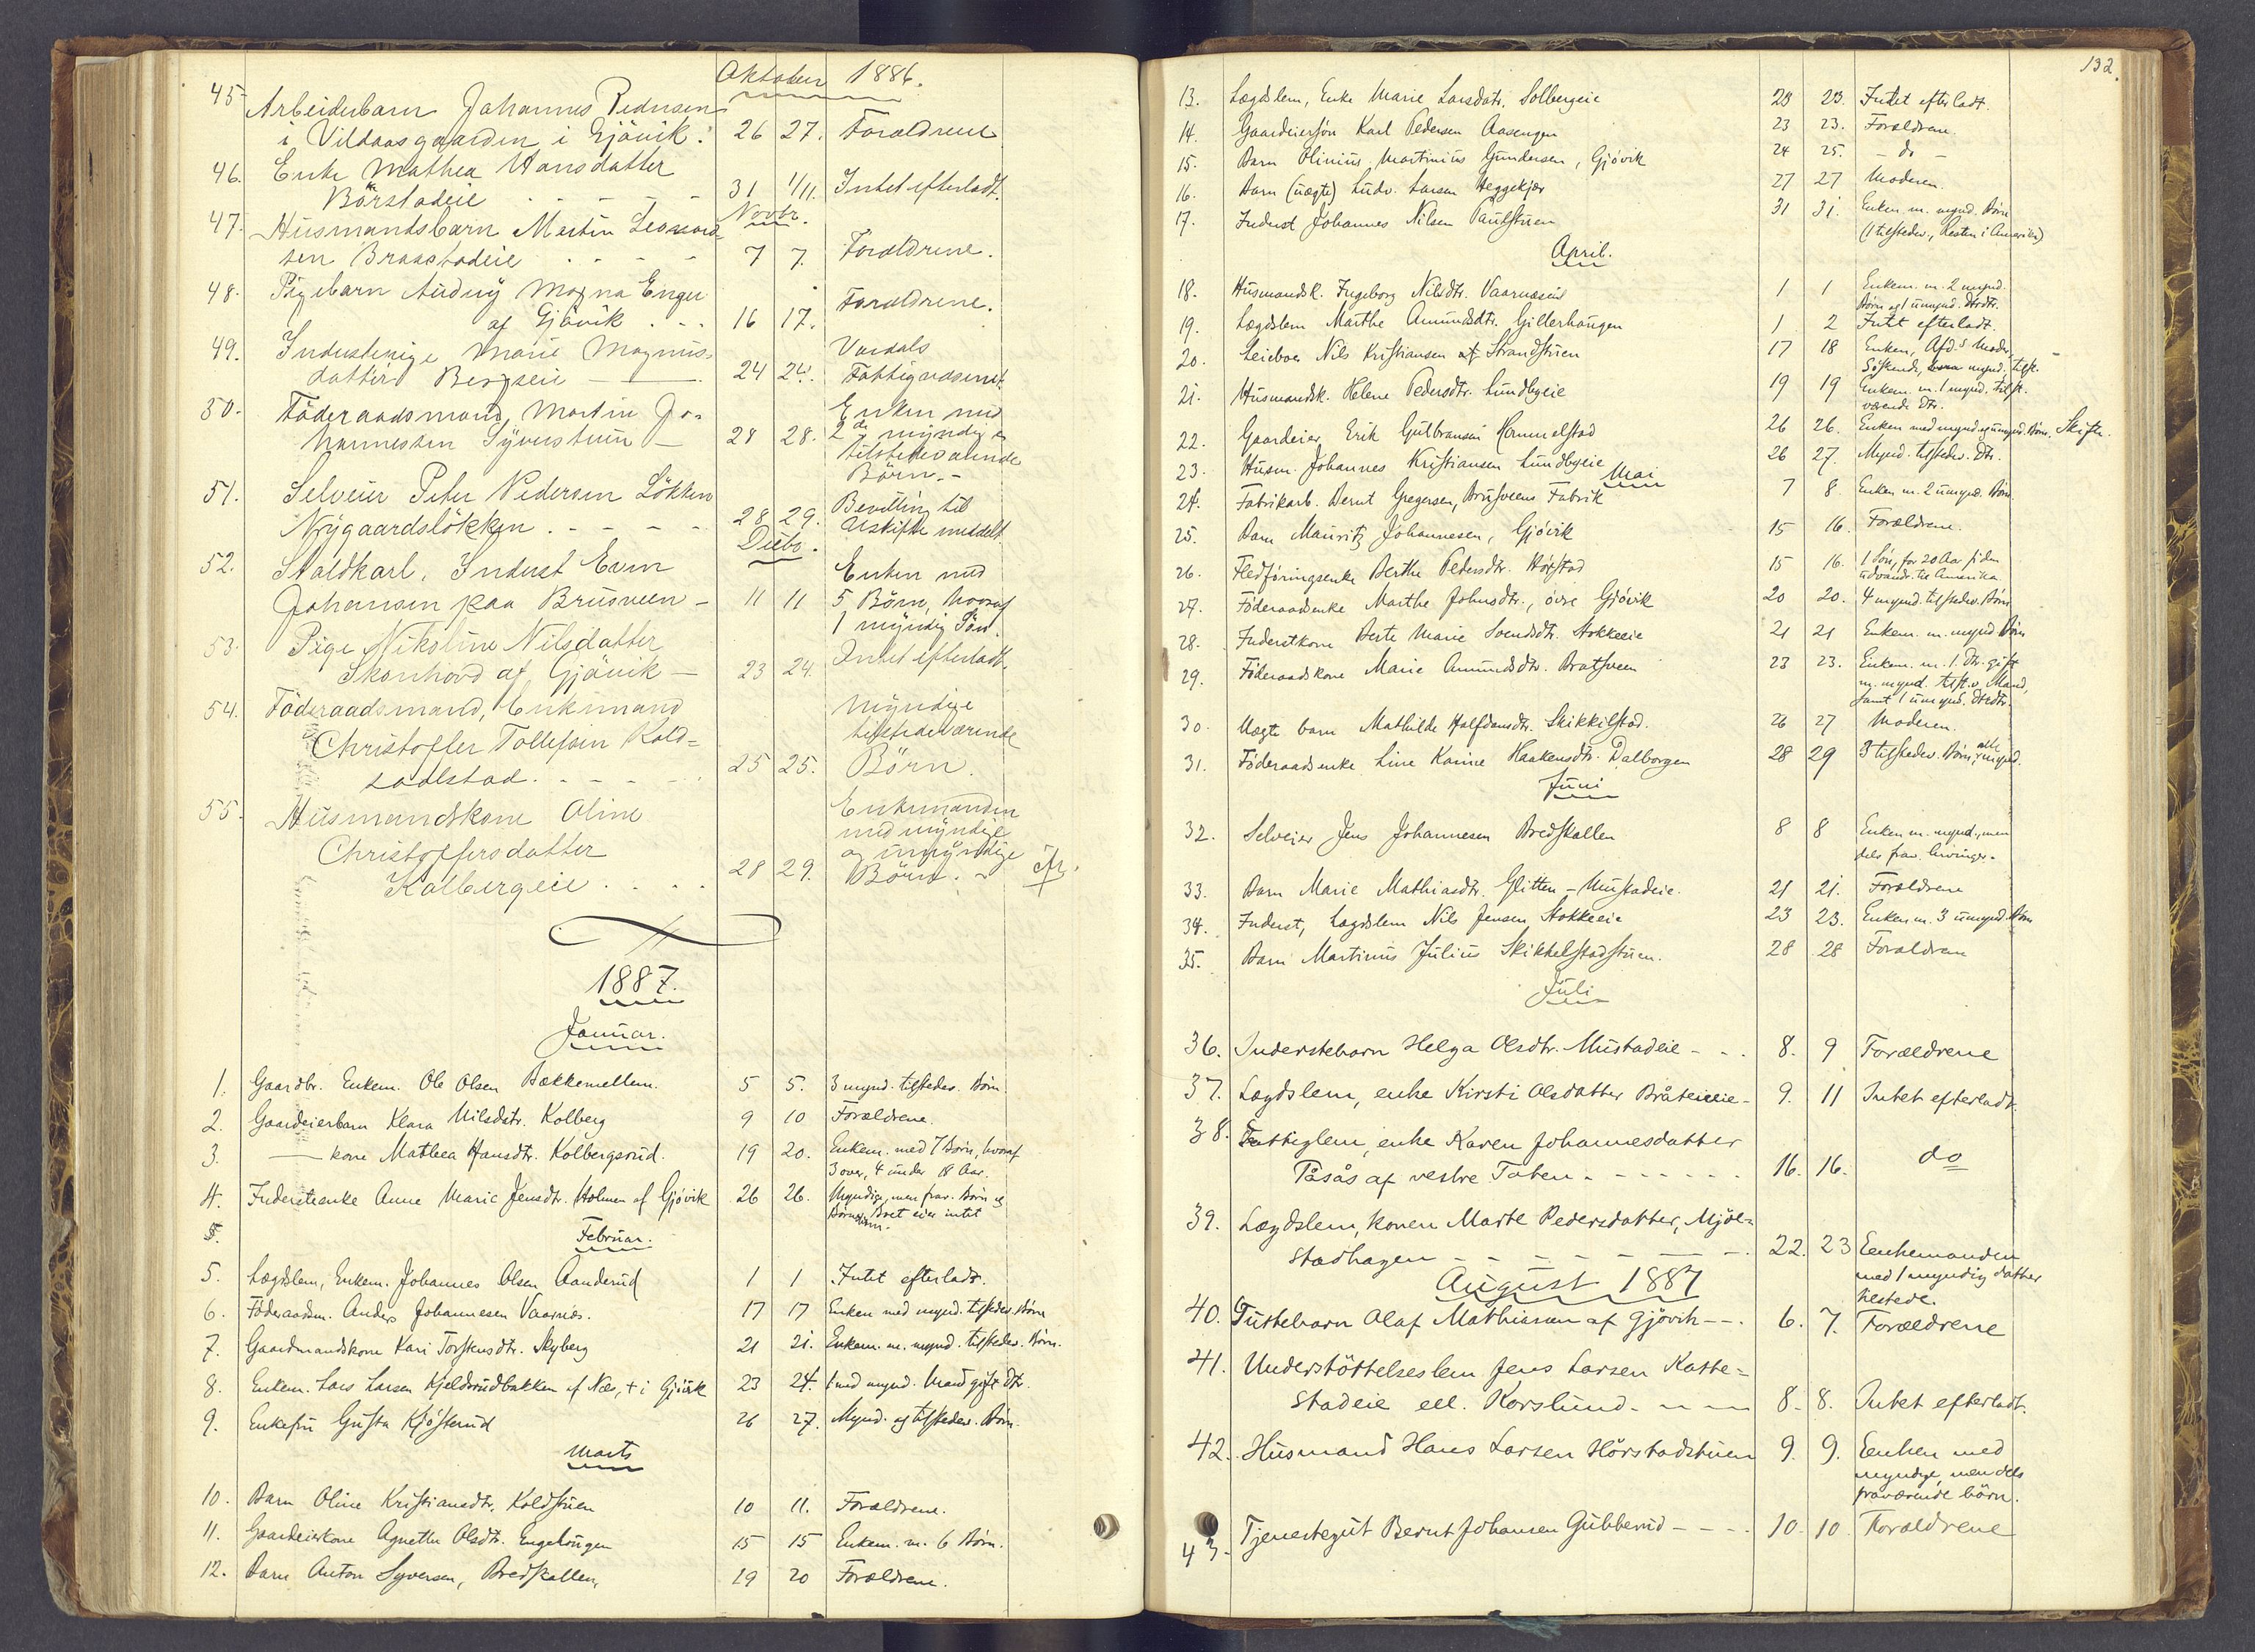 Oktober 1886.
45. Arbeiderbarn Johannes Pedersen
i Vildaasgaarden i Gjövik. 26 27. Forældrene
46. Enke Mathea Hansdatter
Börstadeie - - - - 31 1/11. Intet efterladt.
Novbr.
47. Husmandsbarn Martin Leonard-
sen Braastadeie - - - 7 7. Forældrene.
48. Pigebarn Audny Magna Enger
af Gjövik . - . 16 17. Forældrene.
49. Inderstepige Marie Magnus-
datter Bergseie — 24 24. Vardals
Fattigvæsenet
50. Föderaadsmand, Martin Jo-
hannessen Syverstuen — 28 28. Enken med
2de myndige
tilstedeværende
Börn. -
51. Selveier Peter Pedersen Lökken
Nygaardslökken . - - - - 28 29. Bevilling til
Uskifte meddelt.
Decbr.
52. Staldkarl, Inderst Even
Johansen paa Brusveen - 11 11 Enken med
5 Börn, hvoraf
1 myndig Sön.
53. Pige Nikoline Nilsdatter
Skonhovd af Gjövik — 23 24. Intet efterladt.
54. Föderaadsmand, Enkemand
Christoffer Tollefsen Kold-
saalstad. - - - - 25 25. Myndige
tilstedeværende
Börn.
55. Husmandskone Oline
Christoffersdatter
Kolbergeie . . . . 28 29. Enkemanden
med myndige
og umyndige
Börn. -
1887.
Januar.
1. Gaardbr. Enkem. Ole Olsen Bækkemellem. 5 5. 3 mynd. tilstedev. Börn
2. Gaardeierbarn Klara Nilsdtr. Kolberg 9 10 Forældrene.
3. — kone Mathea Hansdtr. Kolbergsrud. 19 20. Enkem. med 7 Börn, hvoraf
3 over, 4 under 18 Aar.
4.Indersteenke Anne Marie Jensdtr. Holmen af Gjövik 26 26. Myndige, men frav. Börn og
Börnebörn. Boet eier intet
5.
Februar.
5. Lægdslem, Enkem. Johannes Olsen Aanderud 1 1 Intet efterladt.
6. Föderaadsm. Anders Johannesen Vaarnæs. 17 17 Enken med mynd. tilstedev. Börn
7. Gaardmandskone Kari Torstensdtr. Skyberg 21 21. Enkem. m. mynd. tilstedev. Börn.
8. Enkem. Lars Larsen Kjeldsrudbakken af Næs, + i Gjövik 23 24. 1 med mynd. Mand gift Dtr.
9. Enkefru Gusta Kjösterud 26 27. Mynd. og tilstedev. Börn.
Marts
10. Barn Oline Kristiansdtr. Koldstuen 10 11. Forældrene.
11. Gaardeierkone Agnethe Olsdtr. Engehougen 15 15 Enkem. m. 6 Börn.
12. Barn Anton Syversen, Bredskallen, 19 20 Forældrene.
132.
13. Lægdslem, Enke Marie Larsdatr. Solbergeie 23 23. Intet efterladt.
14. Gaardeiersön Karl Pedersen Aasengen 23 23. Forældrene.
15. Barn Olinius Martinius Gundersen, Gjövik 24 25. - do -
16. Barn (uægte) Ludv. Larsen Heggekjær 27 27 Moderen.
17. Inderst Johannes Nilsen Paulstuen 31 31. Enken m. mynd. Börn
(1 tilstedev., Resten i Amerika)
April.
18. Husmandsk. Ingeborg Nilsdtr. Vaarnæseie 1 1 Enkem. m. 2 mynd.
Börn og 1 umynd. Dtrdtr.
19. Lægdslem Marthe Amundsdtr. Gillerhaugen 1 2 Intet efterladt.
20. Leieboer Nils Kristiansen af Strandstuen 17 18 Enken, Afd.s Moder,
Söskende, mynd. tilst.
21. Husmandsk. Helene Pedersdtr. Lundbyeie 19 19 Enkem. m. 1 mynd. tilst.
værende Dtr.
22. Gaardeier Erik Gulbransen Hammelstad 26 26. Enken med mynd. og umynd. Börn. Skifte.
23. Husm. Johannes Kristiansen Lundbyeie 26 27. Mynd. tilstedev. Dtr.
Mai
24. Fabrikarb. Bernt Gregersen, Brusveens Fabrik 7 8 Enken m. 2 umynd. Börn
25. Barn Mauritz Johannesen, Gjövik 15 16. Forældrene.
26. Fledföringsenke Berthe Pedersdtr. Hörstad 15 16. 1 Sön, for 20 Aar siden
udvandr. til Amerika.
27. Föderaadsenke Marthe Johnsdtr., övre Gjövik 20 20. 4 mynd. tilstedev. Börn
28. Inderstkone Berte Marie Svendsdtr. Stokkeeie 21 21 Enkem. m. mynd. Börn
29. Föderaadskone Marie Amundsdtr. Bratsveen 23 23. Enkem. m. 1 Dtr. gift
m. mynd. tilst.v. Mand,
samt 1 umynd. Dtrdtr.
30. Uægte barn Mathilde Halfdansdtr. Skikkilstad. 26 27 Moderen.
31. Föderaadsenke Line Karine Haakensdtr. Dalborgen 28 29 3 tilstedev. Börn, alle mynd.
Juni
32. Selveier Jens Johannesen Bredskallen 8 8 Enken m. mynd., men
dels frav. Livsinger.
33. Barn Marie Mathiasdtr. Glitten - Mustadeie. 21 21. Forældrene
34. Inderst, Lægdslem Nils Jensen Stokkeeie 23 23. Enken m. 3 umynd. Börn
35. Barn Martinus Julius Skikkelstadstuen. 28 28 Forældrene
Juli
36. Inderstebarn Helga Olsdtr. Mustadeie - . . 8. 9 Forældrene
37. Lægdslem, enke Kirsti Olsdatter Bråteneie - 9. 11 Intet efterladt.
38. Fattiglem, enke Karen Johannesdatter
Påsås af vestre Toten. - - - - - - 16. 16. do
39. Lægdslem, konen Marte Pedersdatter, Mjöl-
stadhagen - - - - - - 22. 23 Eenkemanden
med 1 myndig datter
tilstede.
August 1887
40. Tustebarn Olaf Mathiasen af Gjövik - - . 6. 7. Forældrene
41. Understöttelseslem Jens Larsen Katte-
stadeie ell. Korslund. - - - 8. 8. Intet efterladt.
42. Husmand Hans Larsen Hörstadstuen 9. 9. Eenken med
myndige, men dels
fraværende börn.
43. Tjenestegut Bernt Johansen Gubberud - - - - 10. 10. Forældrene